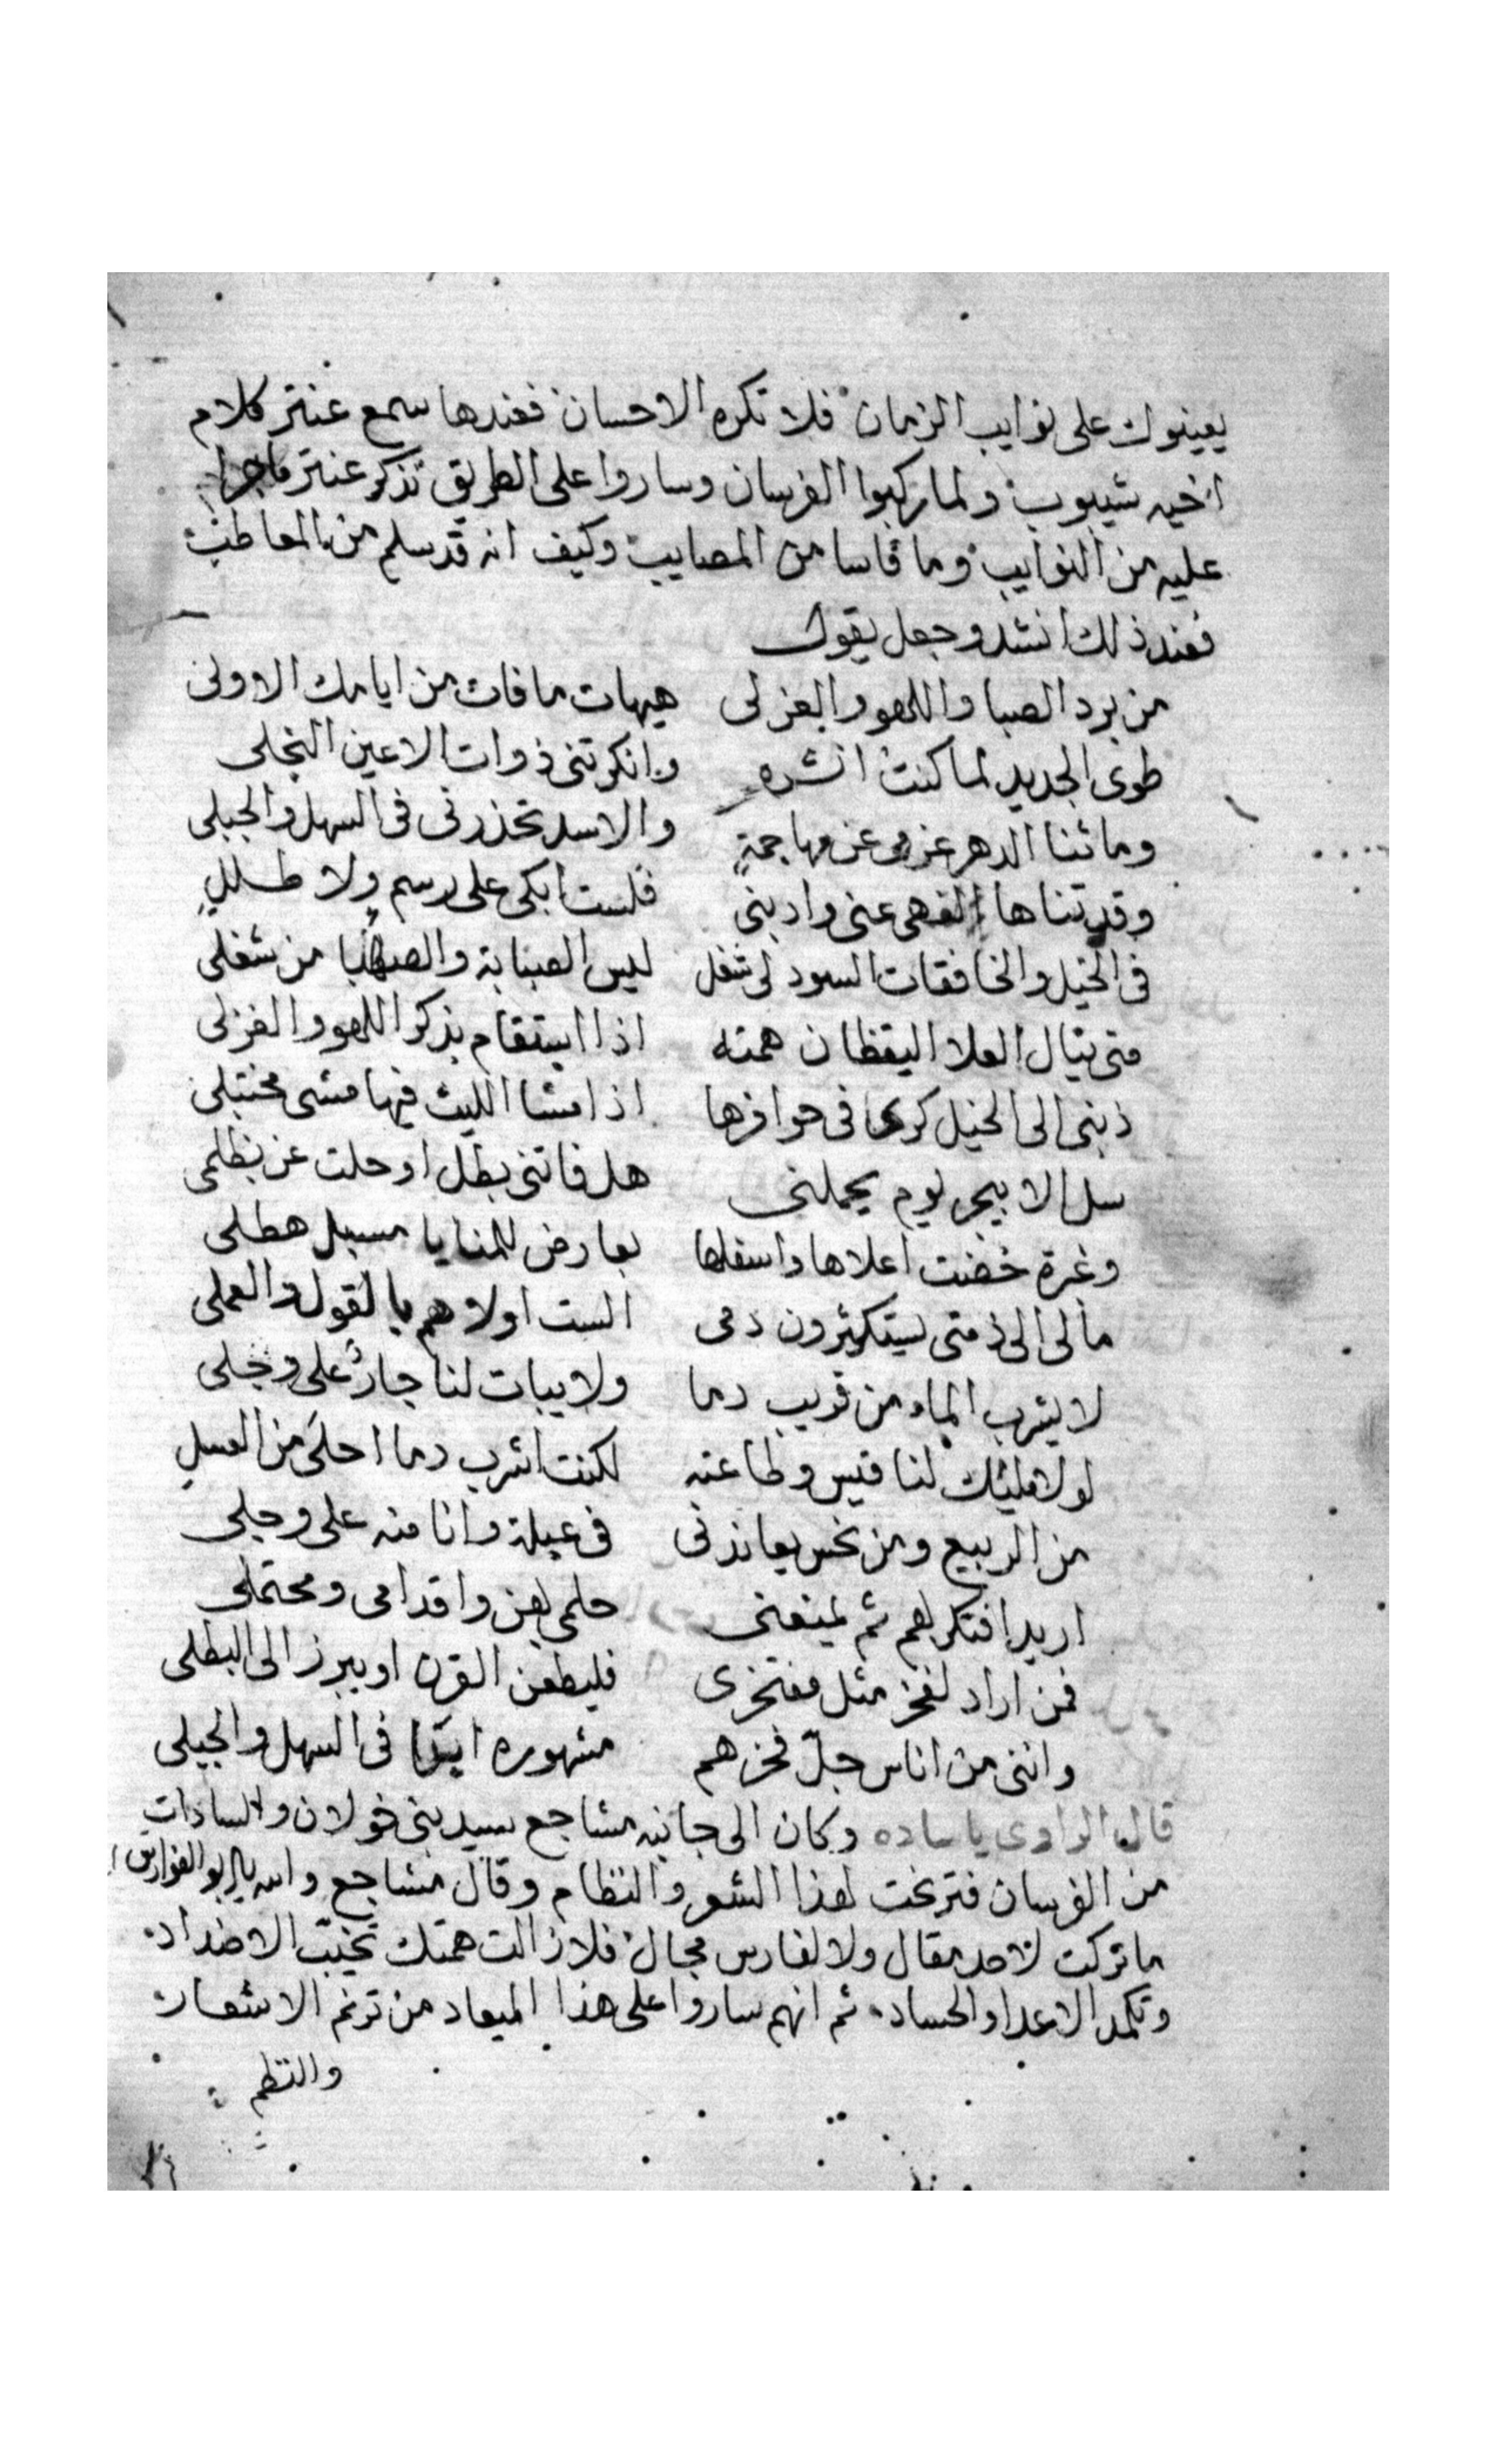 يعينوك على نوايب الزمان فلا تكره الاحسان فعندها سمع عنتر كلام
اخيه شيبوب ولما ركبوا الفرسان وساروا على الطريق تذكر عنتر ماجرا
عليه من النوايب وما قاسا من المصايب وكيف انه قد سلم من المعاطب
فعند ذلك انشد وجعل يقول
من برد الصبا واللهو والغزلى هيهات ما فات من ايامك الاولى
طوى الجديد لما كنت انشره وانكرتنى ذوات الاعين النجلى
وما ثنا الدهر عزمى عن مهاجمةٍ والاسد تحذرنى فى السهل والجبلى
وقد تناها الفهى عنى وادبنى فلست ابكى على رسمٍ ولا طللٍ
فى الخيل والخافقات السود لى شغل ليس الصبابة والصهبا من شغلى
متى ينال العلا اليقظان همته اذا استقام بذكر اللهو والغزلى
ذنبى الى الخيل كرى فى حوافزها اذا مشا الليث فيها مشى مختبلى
سل الابيجر يوم يحملنى هل فاتنى بطل او حلت عن بطلى
وغمرة خضت اعلاها واسفلها بعارض للمنايا مسبل هطلى
مالى الى ذمتى يستكثرون دمى الست اولاهم بالقول والعملى
لا يشرب الماء من قريب دما ولا يبات لنا جارٌ على وجلى
لولا مليك لنا قيس وطاعته لكنت اشرب دما احلى من العسلِ
من الربيع ومن نحس يعاندنى فى عبلة وانا منه على وجلى
اريد افتكر لهم ثم يمنعنى حلمى لهن واقدامى ومحتملى
فمن اراد لفخر مثل مفتخرى فليطعن القرن او يبرز الى البطلى
واننى من اناس جلّ فخرهم مشهوره ابدًا فى السهل والجبلى
قال الراوى ياساده وكان الى جانبه مشاجع سيد بنى خولان والسادات
من الفرسان فترنحت لهذا الشعر والنظام وقال مشاجع والله يا ابو الفوارس
ما تركت لاحد مقال ولا لفارس مجال فلا زالت همتك تخيّب الاضداد
وتكمد الاعدا والحساد ثم انهم ساروا على هذا الميعاد من ترنم الاشعار
والنظم